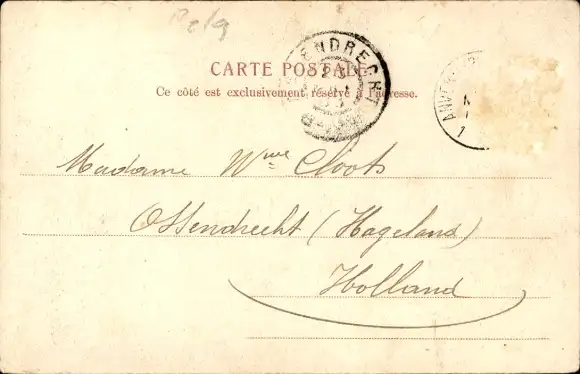 Belg
ENDRECHT
CARTE POSTALE
Ce côté est exclusivement réservé à l'adresse.
ANVE
Madame Wwe Cloots
Ossendrecht (Hageland)
Holland